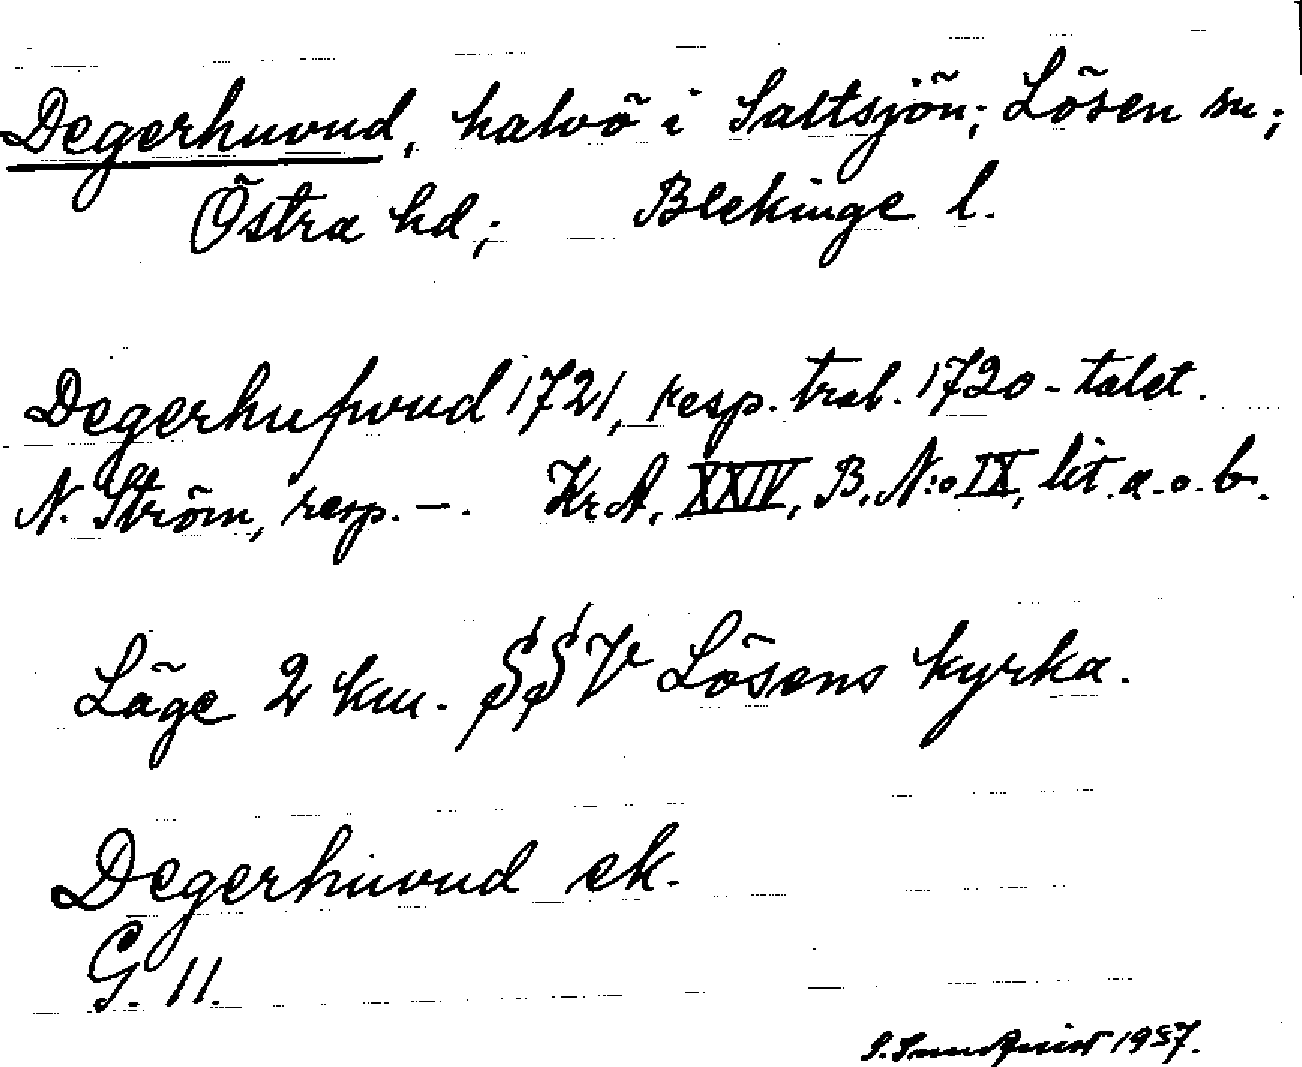 Degerhuvud, halvö i Saltsjön; Lösen sn;
Östra hd; Blekinge l.
Degerhufvud 1721, resp. trol. 1720-talet.
N. Ström, resp. –. KrA, XXIV, B, N:o IX, lit. a. o. b.
Läge 2 km. SSV Lösens kyrka.
Degerhuvud ek.
G. 11.
1957.